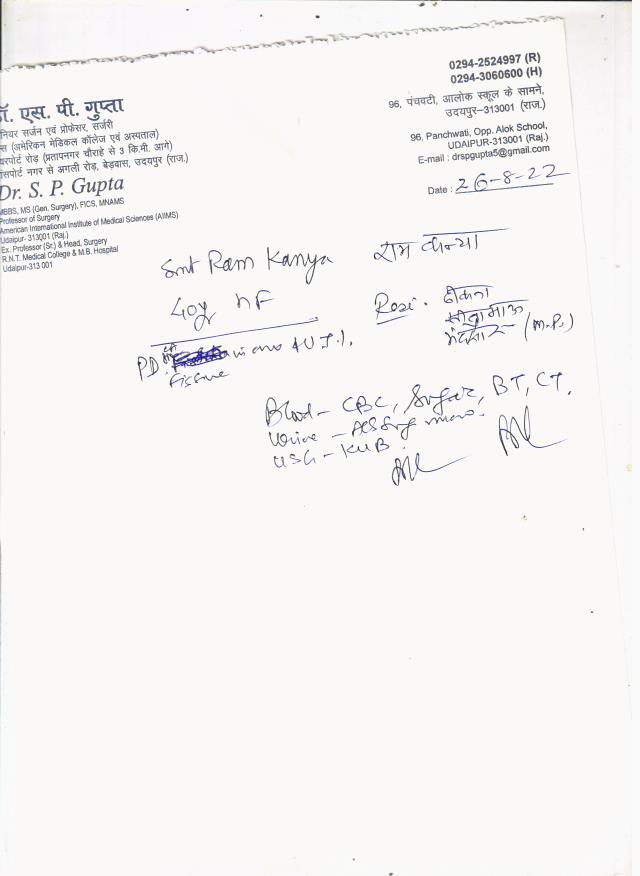 0294-2524997 (R)
0294-3060600 (H)
96, पंचवटी, आलोक स्कूल के सामने,
उदयपुर-313001 (राज.)
96, Panchwati, Opp. Alok School,
UDAIPUR-313001 (Raj.)
E-mail : drspgupta5@gmail.com
Date : 26-8-22
ॉ. एस. पी. गुप्ता
नियर सर्जन एवं प्रोफेसर, सर्जरी
स (अमेरिकन मेडिकल कॉलेज एवं अस्पताल)
यरपोर्ट रोड़ (प्रतापनगर चौराहे से 3 कि.मी. आगे)
सपोर्ट नगर से अगली रोड़, बेड़वास, उदयपुर (राज.)
Dr. S. P. Gupta
MBBS, MS (Gen. Surgery), FICS, MNAMS
Professor of Surgery
American International Institute of Medical Sciences (AIIMS)
Udaipur- 313001 (Raj.)
Ex. Professor (Sr.) & Head, Surgery
R.N.T. Medical College & M.B. Hospital
Udaipur-313 001
Smt Ram Kanya राम कन्या
40y HF
(M.P.)
PD
Fissure
Blood - CBC, Sugar, BT, CT.
Urine -
USG - KUB